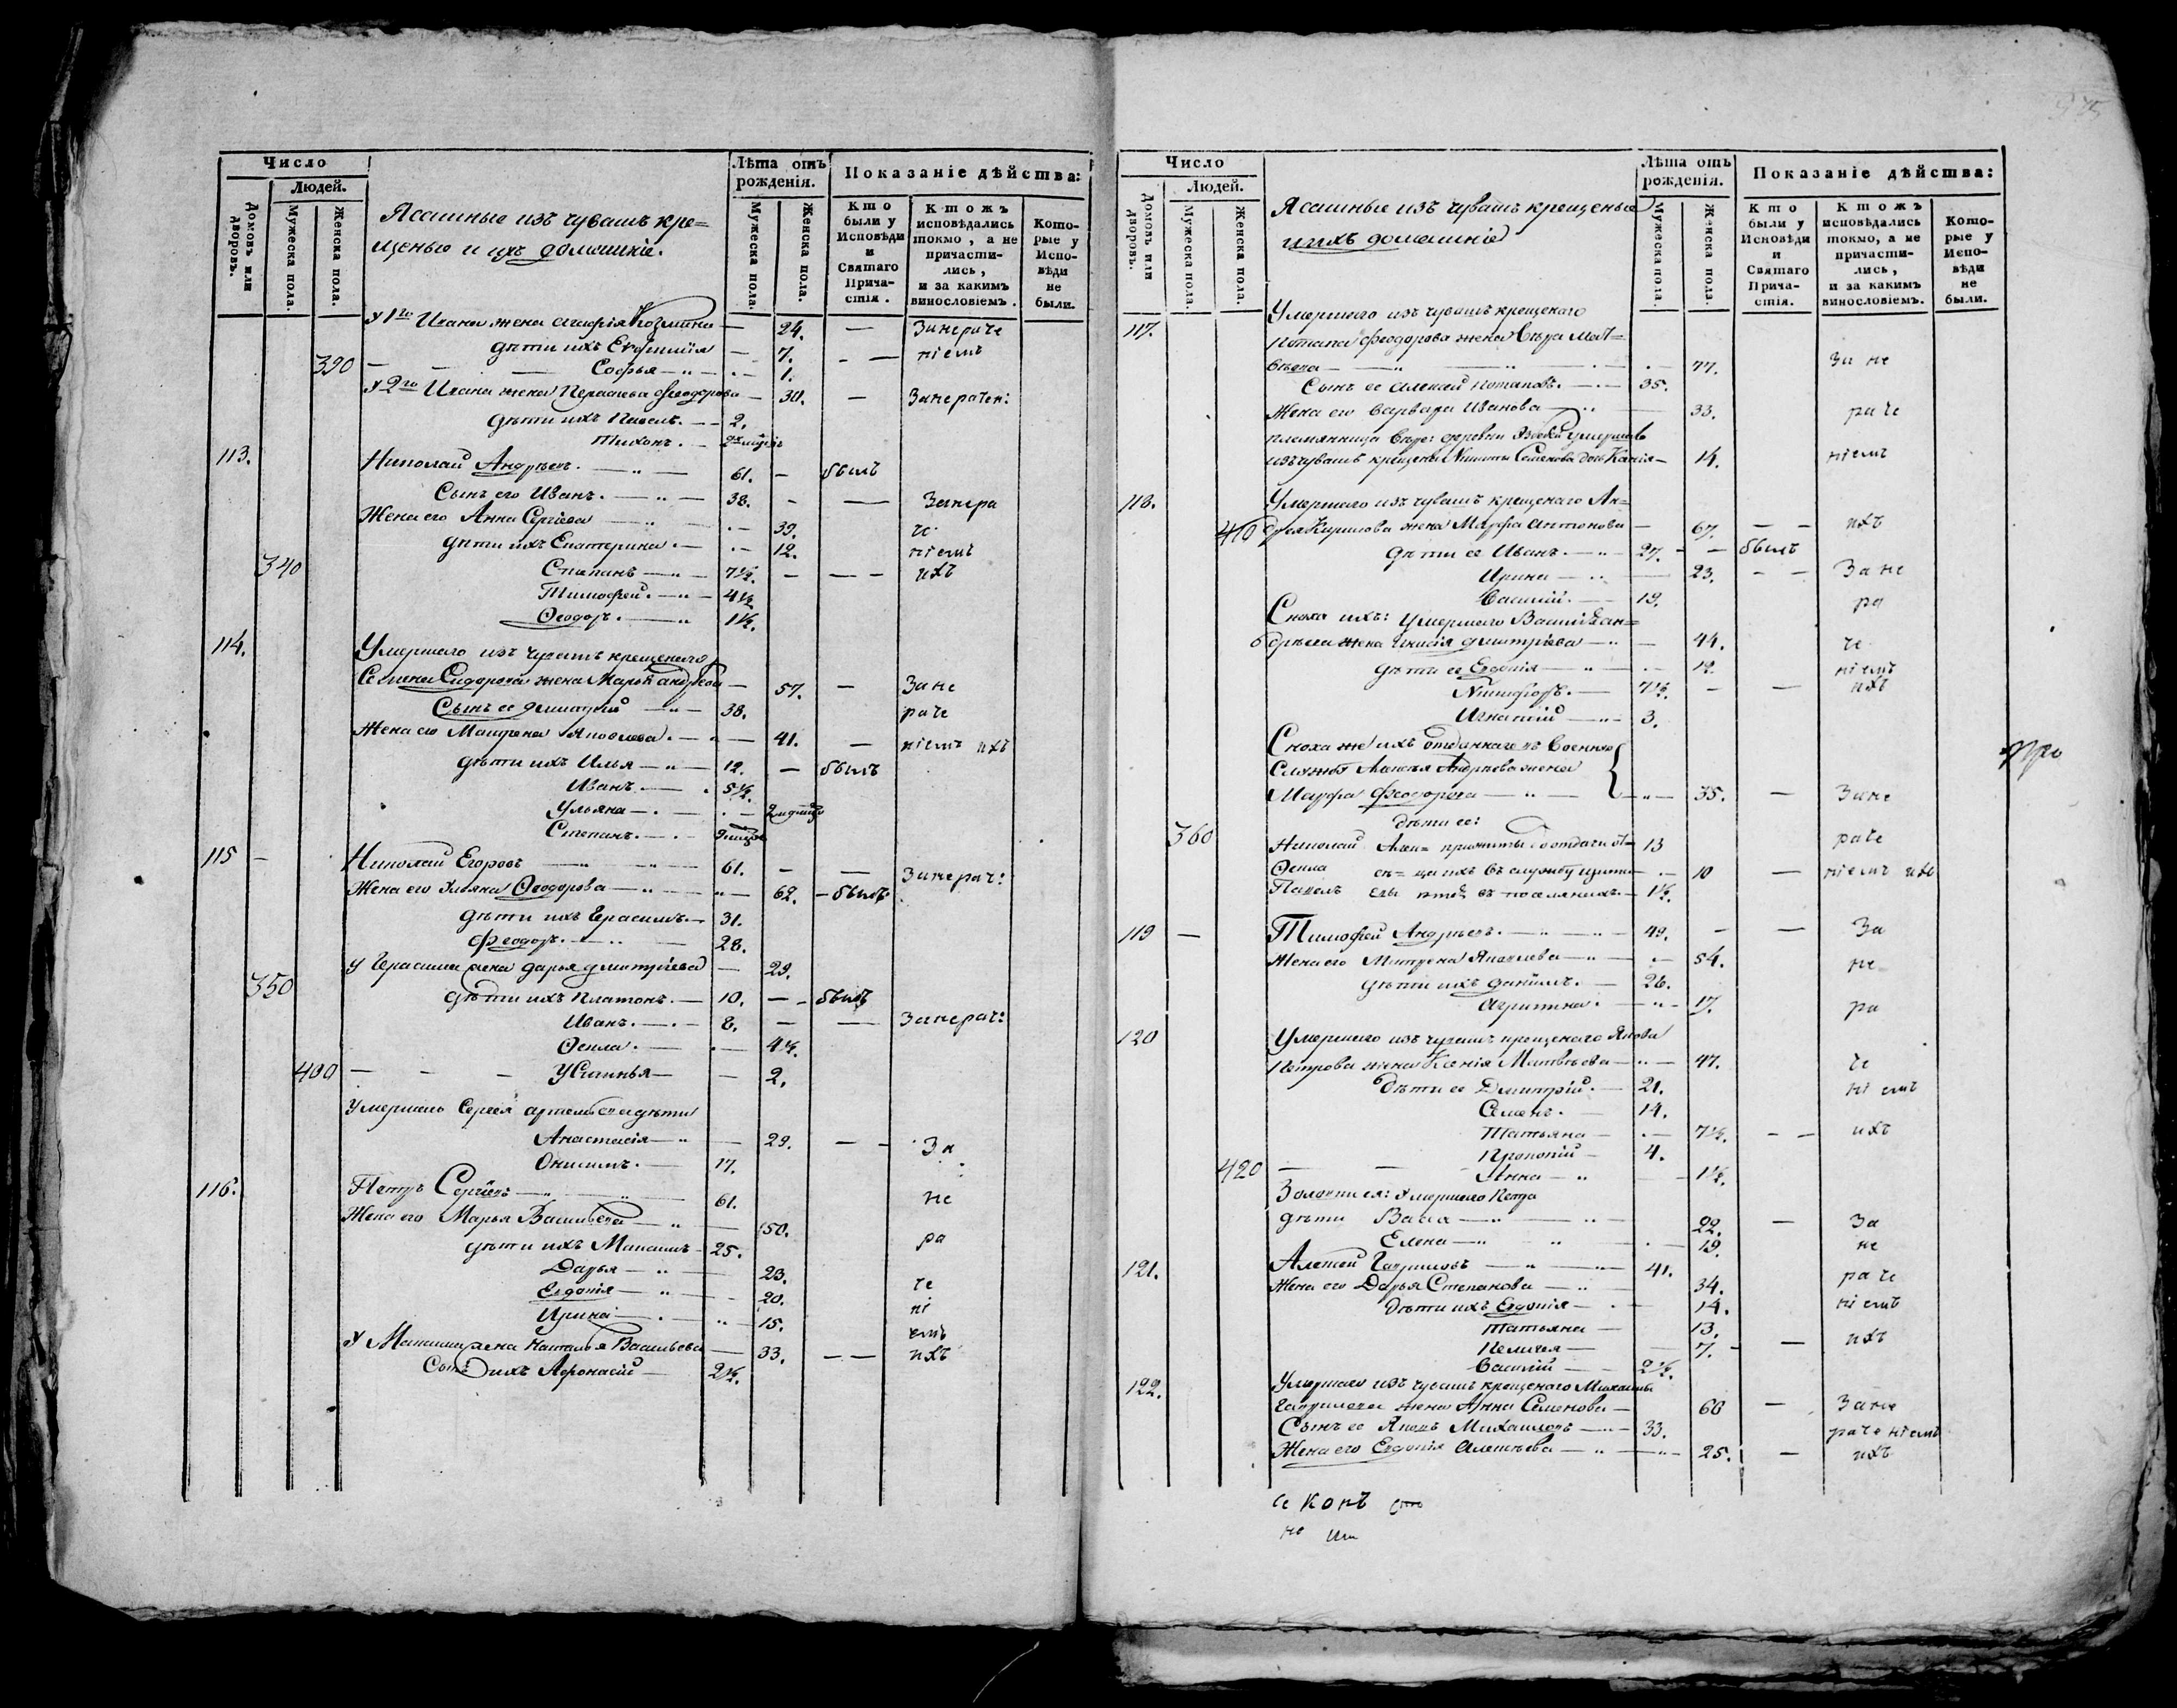 Число
Людей.
Домовъ или дворовъ.
Мужеска пола.
Женска пола.
Ясашные изъ чувашъ кре=
щеныя и ихъ домашніе.
Лѣта отъ рожденія.
Мужеска пола.
Женска пола.
Показаніе дѣйства:
Кто были у Исповѣди и Святаго Прича-стія.
Ктожъ исповѣдались токмо, а не причасти-лись, и за какимъ винословіемъ.
Кото-рые у Испо-вѣди не были.
У 1го Ивана жена Агафія Козмина — 24. — Занераче
дѣти ихъ Евфимія — 7. — ніемъ
390 — Софья — 1.
У 2го Ивана жена Параскева Феодорова — 30. — Занерачен:
дѣти ихъ Павелъ. — 2.
Тихонъ. —
113. Николай Андреевъ. — 61. — былъ
Сынъ его Иванъ. — 38. — Занера
Жена его Анна Сергіева — 39. че
дѣти ихъ Екатерина. — 12. ніемъ
340 Степанъ — 7½. — ихъ
Тимофей. — 4½
Ѳеодоръ. — 1½.
114. Умершаго изъ чувашъ крещенаго
Семена Сидорова жена Марья Андреева — 57. — Зане
Сынъ ее Димитрій — 38. раче
Жена его Матрена Яковлева. — 41. — ніемъ ихъ
дѣти ихъ Илья — 12. — былъ
Иванъ. — 5½.
Ульяна —
Степанъ. —
115 — Николай Егоровъ — 61. — Занерач:
Жена его Ульяна Ѳеодорова — 62. — была
дѣти ихъ Герасимъ. — 31.
Феодоръ. — 28.
У Герасима жена Дарья Димитріева — 29.
350 дѣти ихъ Платонъ. — 10. — былъ
Иванъ. — 8. — Занерач:
Ѳекла. — 4½.
400 — Устинья — 2.
Умершаго Сергея Артемьева дѣти
Анастасія — 29. — За
Онисимъ. — 17.
116. Петръ Сергѣевъ — 61. не
Жена его Марья Васильева — 50.
дѣти ихъ Максимъ — 25. ра
Дарья — 23.
Евдокія — 20. че
Ирина — 15. ні
У Максима жена Наталья Васильева — 33. — емъ ихъ
Сынъ ихъ Афонасій — 2½.
Число
Людей.
Домовъ или дворовъ.
Мужеска пола.
Женска пола.
Ясашные изъ чувашъ крещеные
и ихъ домашніе
Лѣта отъ рожденія.
Мужеска пола.
Женска пола.
Показаніе дѣйства:
Кто были у Исповѣди и Святаго Прича-стія.
Ктожъ исповѣдались токмо, а не причасти-лись, и за какимъ винословіемъ.
Кото-рые у Испо-вѣди не были.
117. Умершаго изъ чувашъ крещенаго
Потапа Феодорова жена Вера Мат=
вѣева — 77. За не
Сынъ ее Алексей Потаповъ. — 35.
Жена его Варвара Иванова — 33. раче
племянница деревни умершаго
изъ чувашъ крещены Никиты Семенова дочь — 14. ніемъ
118. Умершаго изъ чувашъ крещенаго Ан=
410 дрея Кирилова жена Марфа Антонова — 67. — ихъ
дѣти ее Иванъ. — 27. — былъ
Ирина — 23. — Зане
Василій. — 19. ра
Сноха ихъ: Умершаго Василья Ан=
дреева жена Димитріева — 44. че
дѣти ее Евдокія — 12. ніемъ
Никифоръ. — 7½. — ихъ
Игнатій — 3.
Сноха же ихъ отданнаго въ Военную
Службу Андреева жена
Марфа Феодорова — 35. — Зане
дѣти ее:
360 Николай 13 раче
Ѳекла 10 — ніемъ ихъ
Павелъ 1½.
119 — Тимофей Андреевъ. — 49. — За
Жена его Матрена Яковлева — 54. не
дѣти ихъ Данилъ. — 26.
Агрипина. — 17. ра
120 Умершаго изъ чувашъ крещенаго Якова
Петрова жена Ксенія Матвѣева — 47. че
Дѣти ее Димитрій. — 21. ні емъ
Семенъ. — 14.
Татьяна — 7½. — ихъ
Прокопій — 4.
420 — Анна — 1½.
Умершаго Петра
дѣти Васса — 22. — За
Елена — 19. не
121. Алексей Гавриловъ — 41. раче
Жена его Дарья Степанова — 34.
Дѣти ихъ Евдокія — 14. ні емъ
Татьяна — 13.
Пелагея — 7. — ихъ
Василій — 2½.
122. Умершаго изъ чувашъ крещенаго Михаила
Гаврилова жена Анна Семенова — 60 — Зане
Сынъ ее Яковъ Михайловъ — 33. раче ніемъ
Жена его Евдокія Алексѣева — 25. — ихъ